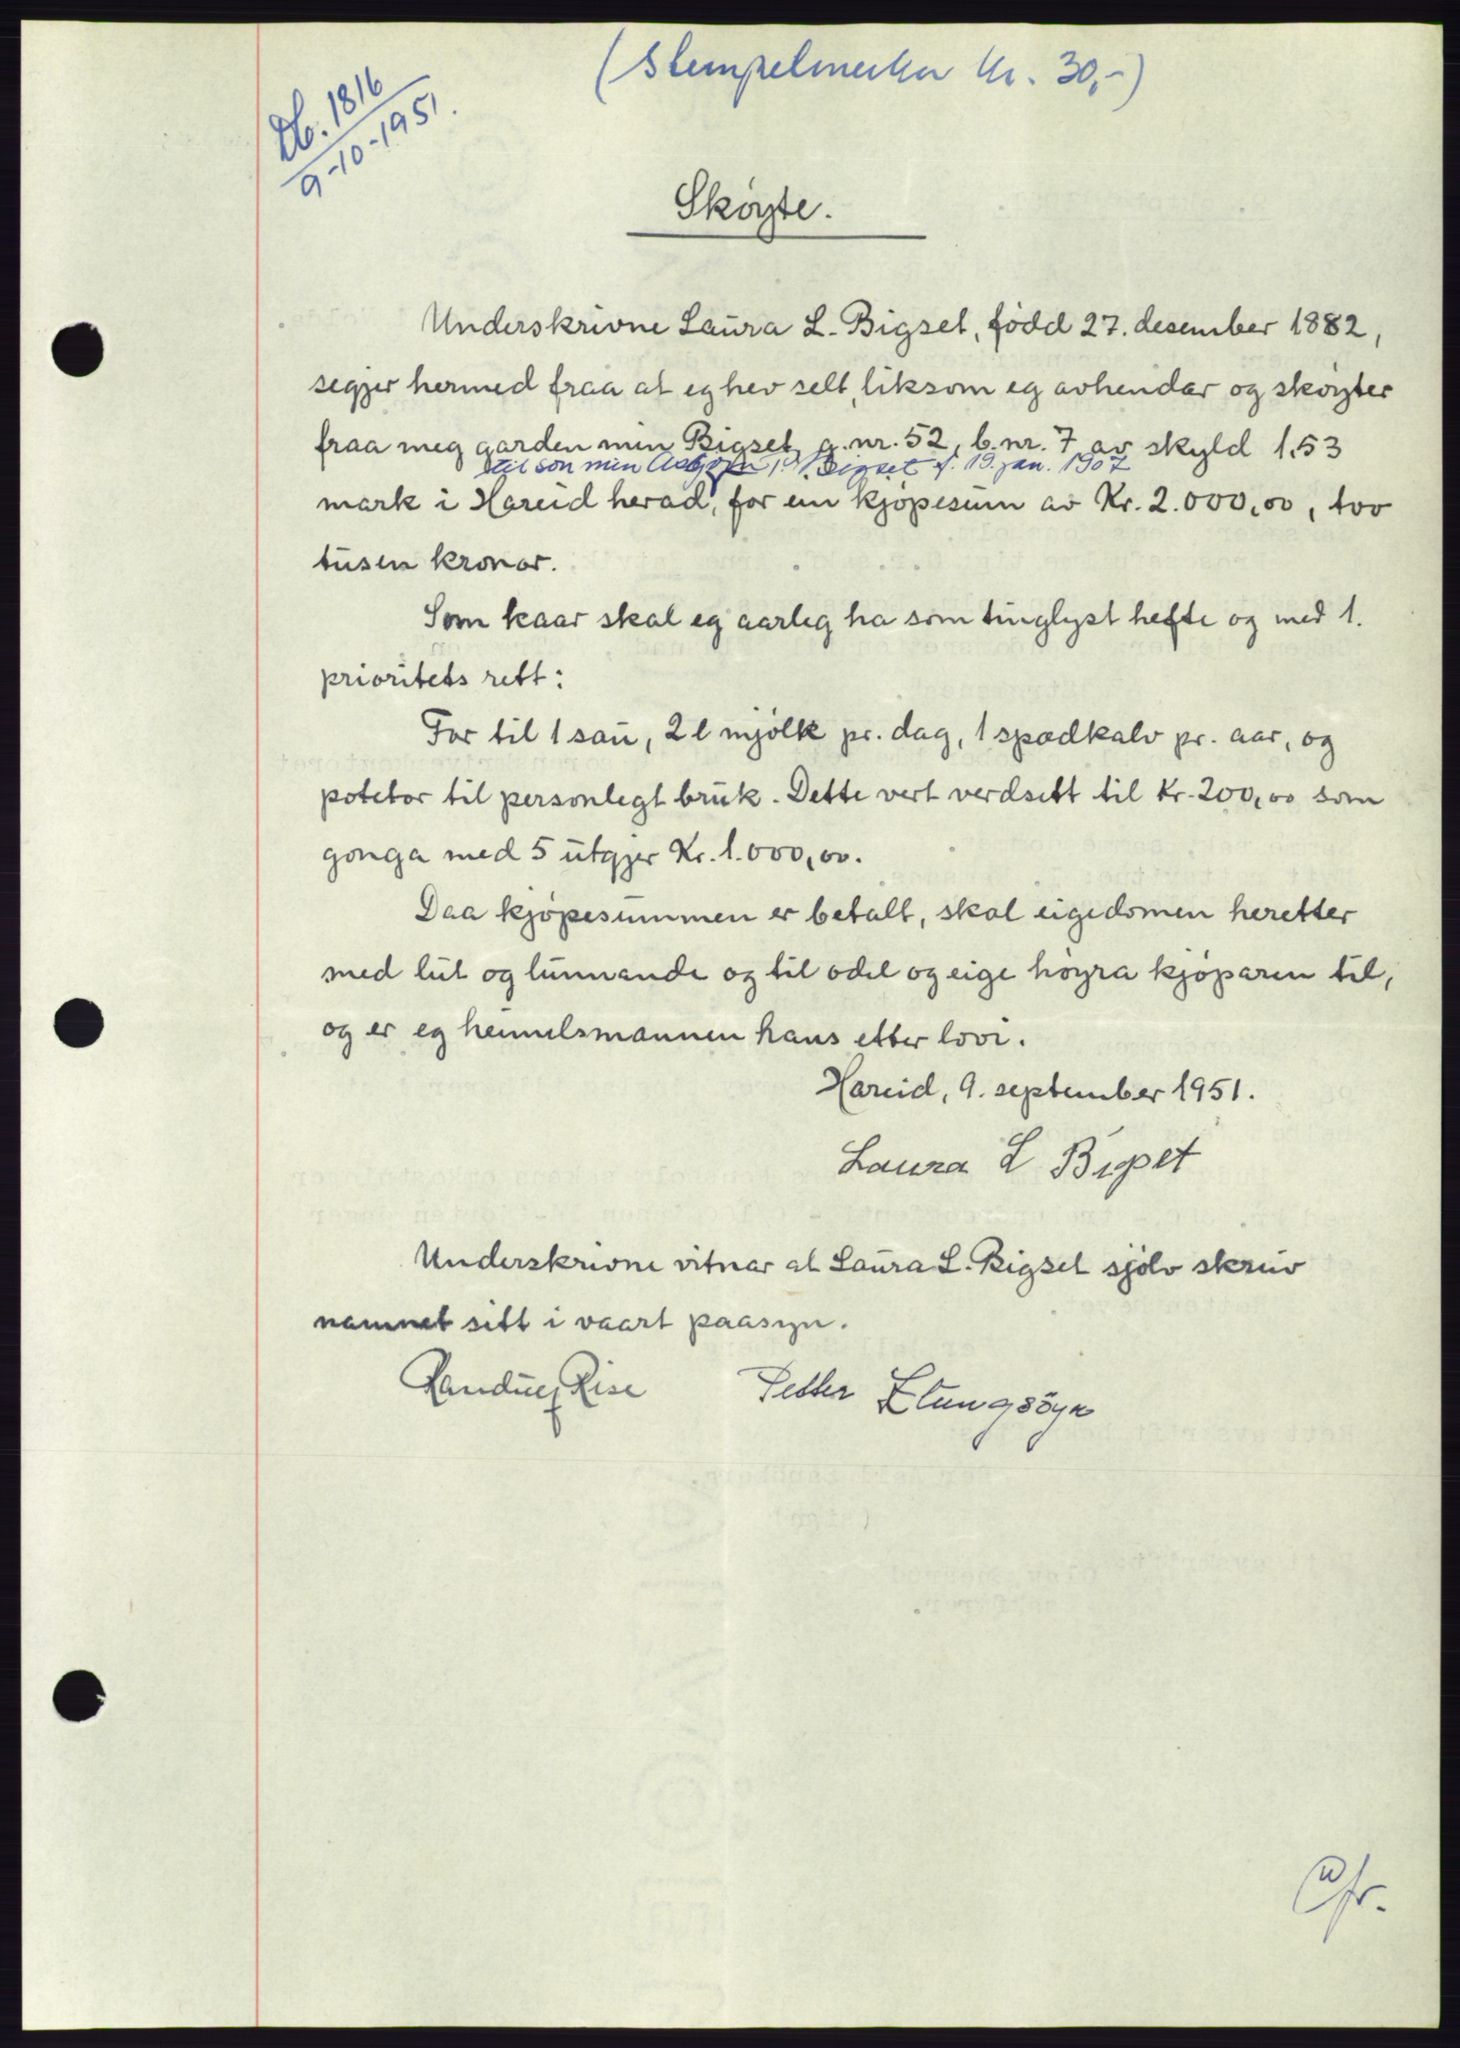 (Stempelmerker kr. 30,-)
Db. 1816
9-10-1951.
Skøyte.
Underskrivne Laura L. Bigset, fødd 27. desember 1882,
segjer hermed fraa at eg hev selt, liksom eg avhendar og skøyter
fraa meg garden min Bigset, g.nr. 52, b.nr. 7 av skyld 1.53
til son min Asbjørn P. Bigset f. 19. jan. 1907
mark i Hareid herad, for ein kjøpesum av Kr. 2.000,00, tvo
tusen kronor.
Som kaar skal eg aarleg ha som tinglyst hefte og med 1.
prioritets rett:
For til 1 sau, 2 l mjølk pr. dag, 1 spædkalv pr. aar, og
potetor til personlegt bruk. Dette vert verdsett til Kr. 200,00 som
gonga med 5 utgjer Kr. 1.000,00.
Daa kjøpesummen er betalt, skal eigedomen heretter
med lut og lunnande og til odel og eige høyra kjøparen til,
og er eg heimelsmannen hans etter lovi.
Hareid, 9. september 1951.
Laura L Bigset
Underskrivne vitnar at Laura L. Bigset sjølv skreiv
namnet sitt i vaart paasyn.
Randulf Rise Petter